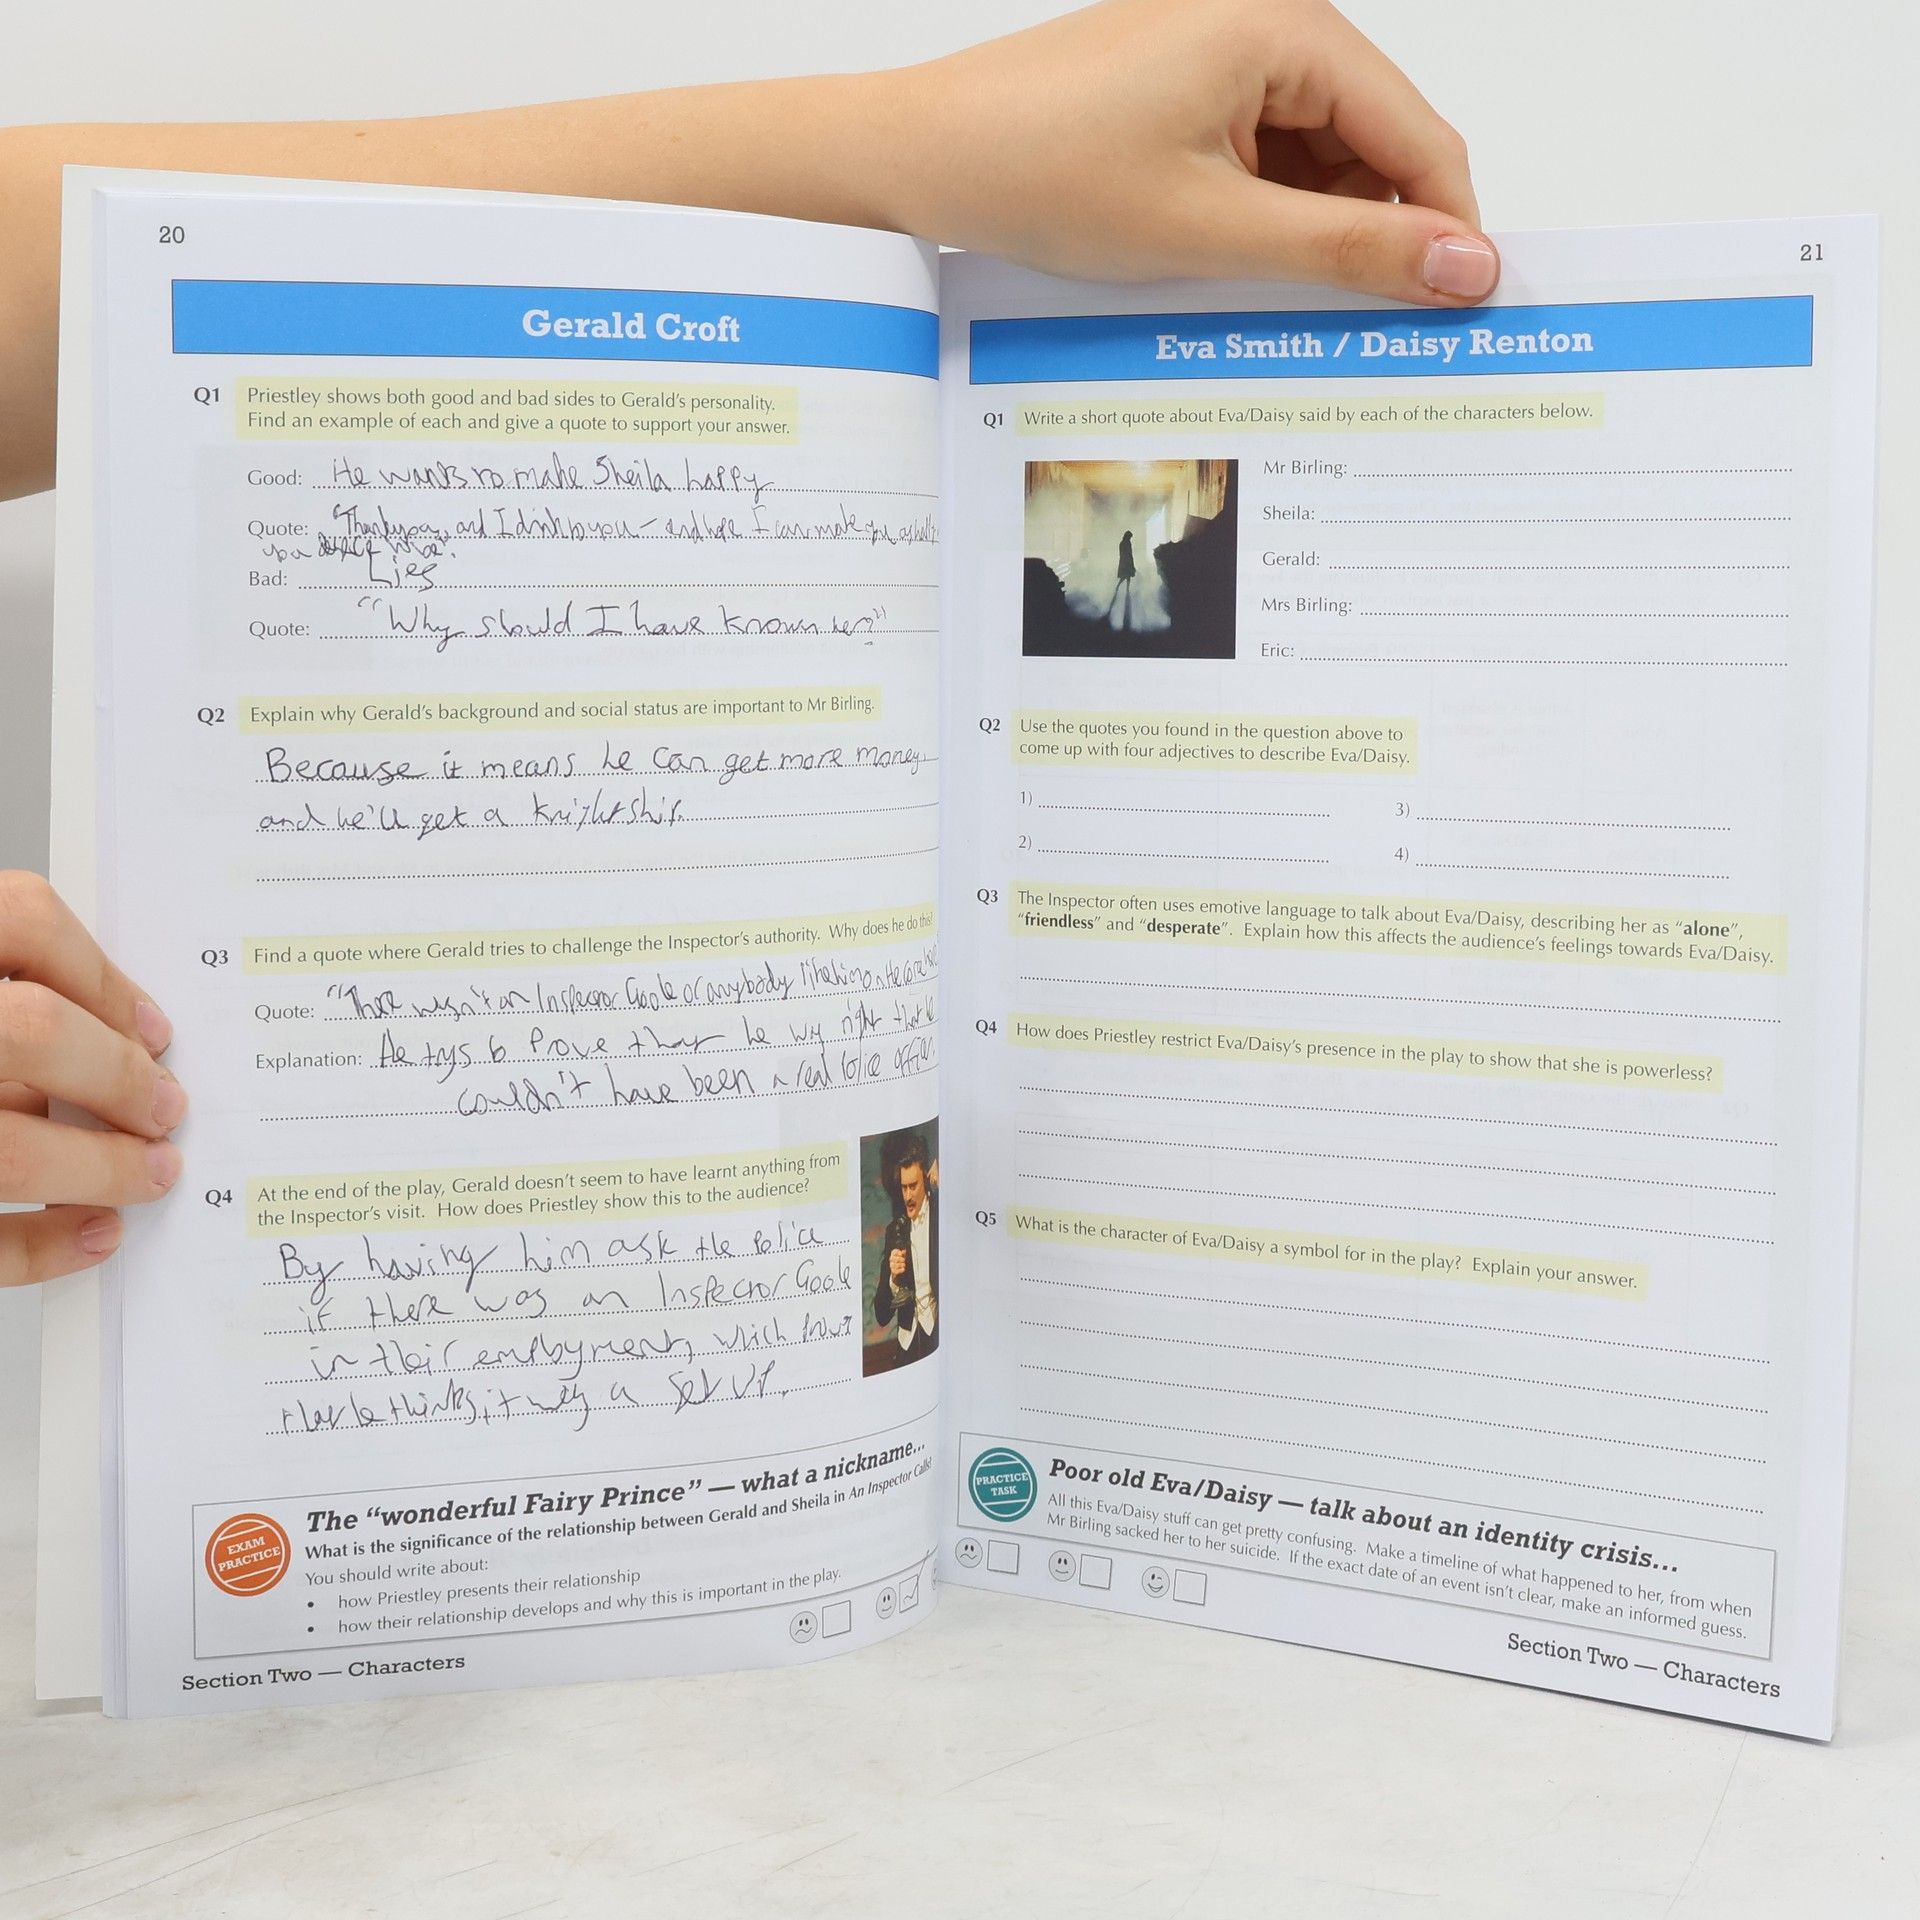 20
Gerald Croft
Q1 Priestley shows both good and bad sides to Gerald's personality.
Find an example of each and give a quote to support your answer.
Good: He wants to make Sheila happy
Quote: "Thankyou, and I drink to you — and hope I can make you as
you
Bad: Lies
Quote: "Why should I have known her?"
Q2 Explain why Gerald's background and social status are important to Mr Birling.
Because it means he can get more money
and he'll get a knightship.
Q3 Find a quote where Gerald tries to challenge the Inspector's authority. Why does he do this?
Quote: "There wasn't an Inspector Goole or anybody like him on the
Explanation: He trys to prove that he was right that he
couldn't have been a real police officer.
Q4 At the end of the play, Gerald doesn't seem to have learnt anything from
the Inspector's visit. How does Priestley show this to the audience?
By having him ask the police
if there was an Inspector Goole
in their employment, which
that he thinks it was a set up.
EXAM PRACTICE
The "wonderful Fairy Prince" — what a nickname...
What is the significance of the relationship between Gerald and Sheila in An Inspector Calls?
You should write about:
• how Priestley presents their relationship
• how their relationship develops and why this is important in the play.
Section Two — Characters
21
Eva Smith / Daisy Renton
Q1 Write a short quote about Eva/Daisy said by each of the characters below.
Mr Birling:
Sheila:
Gerald:
Mrs Birling:
Eric:
Q2 Use the quotes you found in the question above to
come up with four adjectives to describe Eva/Daisy.
1) 3)
2) 4)
Q3 The Inspector often uses emotive language to talk about Eva/Daisy, describing her as "alone",
"friendless" and "desperate". Explain how this affects the audience's feelings towards Eva/Daisy.
Q4 How does Priestley restrict Eva/Daisy's presence in the play to show that she is powerless?
Q5 What is the character of Eva/Daisy a symbol for in the play? Explain your answer.
PRACTICE TASK
Poor old Eva/Daisy — talk about an identity crisis...
All this Eva/Daisy stuff can get pretty confusing. Make a timeline of what happened to her, from when
Mr Birling sacked her to her suicide. If the exact date of an event isn't clear, make an informed guess.
Section Two — Characters